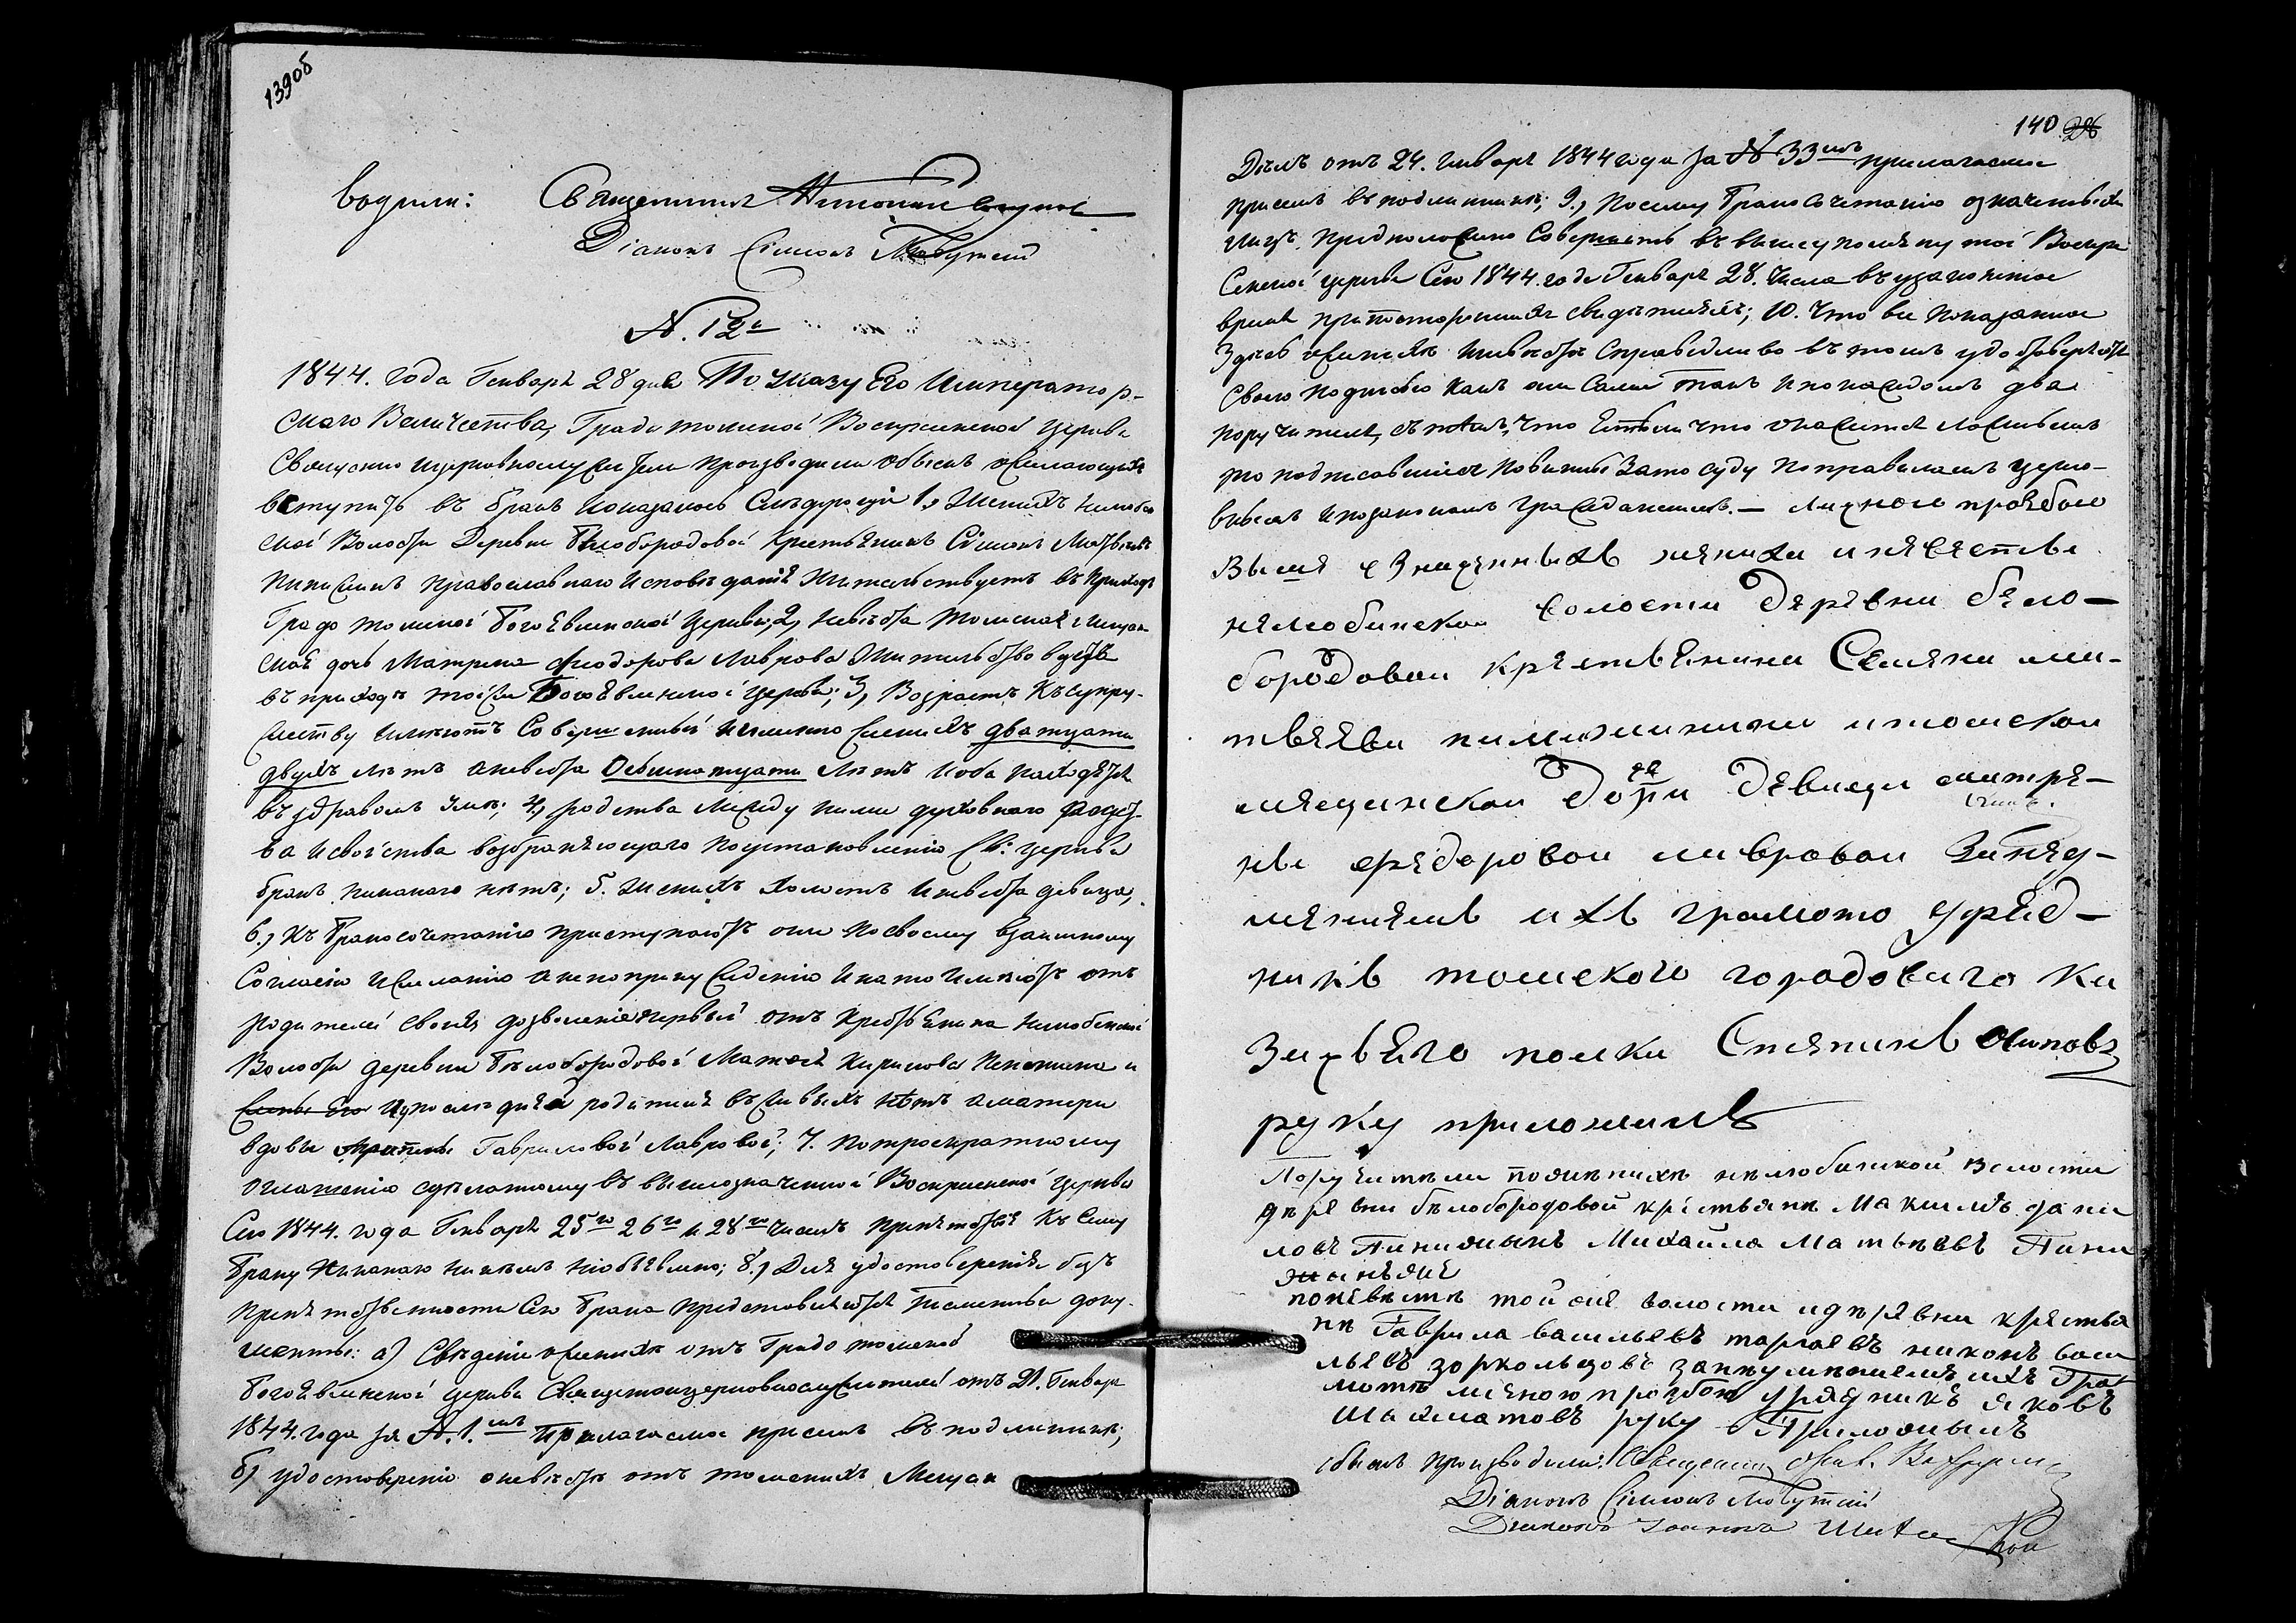 139об
водили: Священник
Діаконъ Сімеонъ
N. 12й
1844. года Генваря 28 дня По Указу Его Император-
скаго Величества, Градотомской Воскресенской церкви
Священно и церковнослужители производили обыскъ о желающихъ
вступить въ бракъ и оказалось следующее 1, Женихъ Нелюбин
ской Волости Деревни Белобородовой Крестьянинъ Сімеонъ Матвеевъ
православнаго исповеданія Жительствуетъ въ приходе
Градотомской Богоявленской церкви, 2, невеста Томская мещан
ская дочь Матрена Феодорова Лаврова Жительствовуетъ
въ приходе той же Богоявленской церкви; 3, Возрастъ къ супру-
жеству имеютъ Совершенный именно женихъ дватцати
двухъ летъ а невеста Осьмнатцати летъ и оба находятся
въ здравомъ уме; 4, родства между ними духовнаго
ва и свойства возбраняющаго по установленію Св: церкви
бракъ никакого нетъ; 5. Женихъ холостъ и невеста девица,
6., къ бракосочетанію приступаютъ они по своему взаимному
Согласію и желанію а не по принужденію и на то имеютъ отъ
родителей своихъ дозволеніе первый отъ Крестьянина Нелюбинской
Волости деревни Белобородовой Матвея Кирилова и
у последней родителя въ живыхъ нетъ а матери
вдовы Гавриловой Лавровой; 7. по троекратному
оглашенію сделанному въ вышеозначенной Воскресенской церкви
Сего 1844. года Генваря 25го 26го и 28го чиселъ препятствія къ сему
браку никакого никемъ не объявлено; 8., Для удостоверенія без
препятственности Сего брака представляются письменные доку-
менты: а) Сведеніе о женихе отъ Градотомской
Богоявленской церкви Священноцерковнослужителей отъ 21. Генваря
1844. года за N. 1.мъ Прилагаемое присемъ въ подлиннике;
б) удостовереніе о невесте отъ томскихъ Мещан
140 26
Делъ отъ 24. Генваря 1844 года за N 33имъ прилагаемое
присемъ въ подлиннике; 9., посему бракосочетанію означенныхъ
лицъ предположено Совершить въ вышеупомянутой Воскре
сенской церкви Сего 1844. года Генваря 28. числа въ узаконенное
время при постороннихъ свидетеляхъ; 10. что все показанное
здесь о женихе и невесте справедливо въ томъ удостоверяютъ
своею подписью какъ они сами такъ и по каждомъ два
поручителя, съ темъ, что Естьли что окажется ложнымъ
то подписавшіеся повинны за то суду по правиламъ церко-
внымъ и по законамъ гражданскимъ.— личною прозьбою
выше означенныхъ жениха и невесты
нелюбинской волости деревни бело-
бородовой крестьянина Семена ма-
твеева и томской
мещанской дочери девицы матре-
ны федоровой лавровой за неу-
мениемъ ихъ грамото уряд-
никъ томского городоваго ка
зачьяго полка Степанъ Осиповъ
руку приложилъ
Поручители по женихе нелюбинской волости
деревни белобородовой крестьяне Максимъ дани
ловъ Михайла Матвеевъ
по невесте той же волости и деревни крестья
не Гаврила васильевъ никонъ васи
льевъ за неуменіемъ ихъ гра
моте личною прозбою урядникъ яковъ
руку Приложилъ
обыскъ производили: Священникъ
Діаконъ Сімеонъ
Диаконъ Іоаннъ